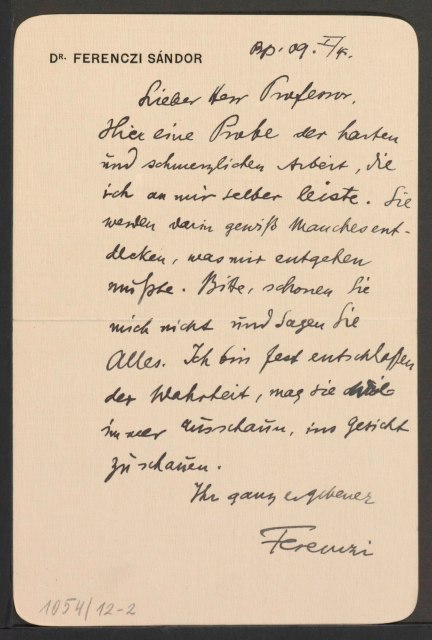 DR. FERENCZI SÁNDOR
Bp. 09. I/4.
Lieber Herr Professor,
Hier eine Probe der harten
und schmerzlichen Arbeit, die
ich an mir selber leiste. Sie
werden darin gewiß Manches ent-
decken, was mir entgehen
mußte. Bitte, schonen Sie
mich nicht und sagen Sie
Alles. Ich bin fest entschlossen
der Wahrheit, mag sie
immer ausschaun, ins Gesicht
zu schauen.
Ihr ganz ergebener
Ferenczi
1054/12-2